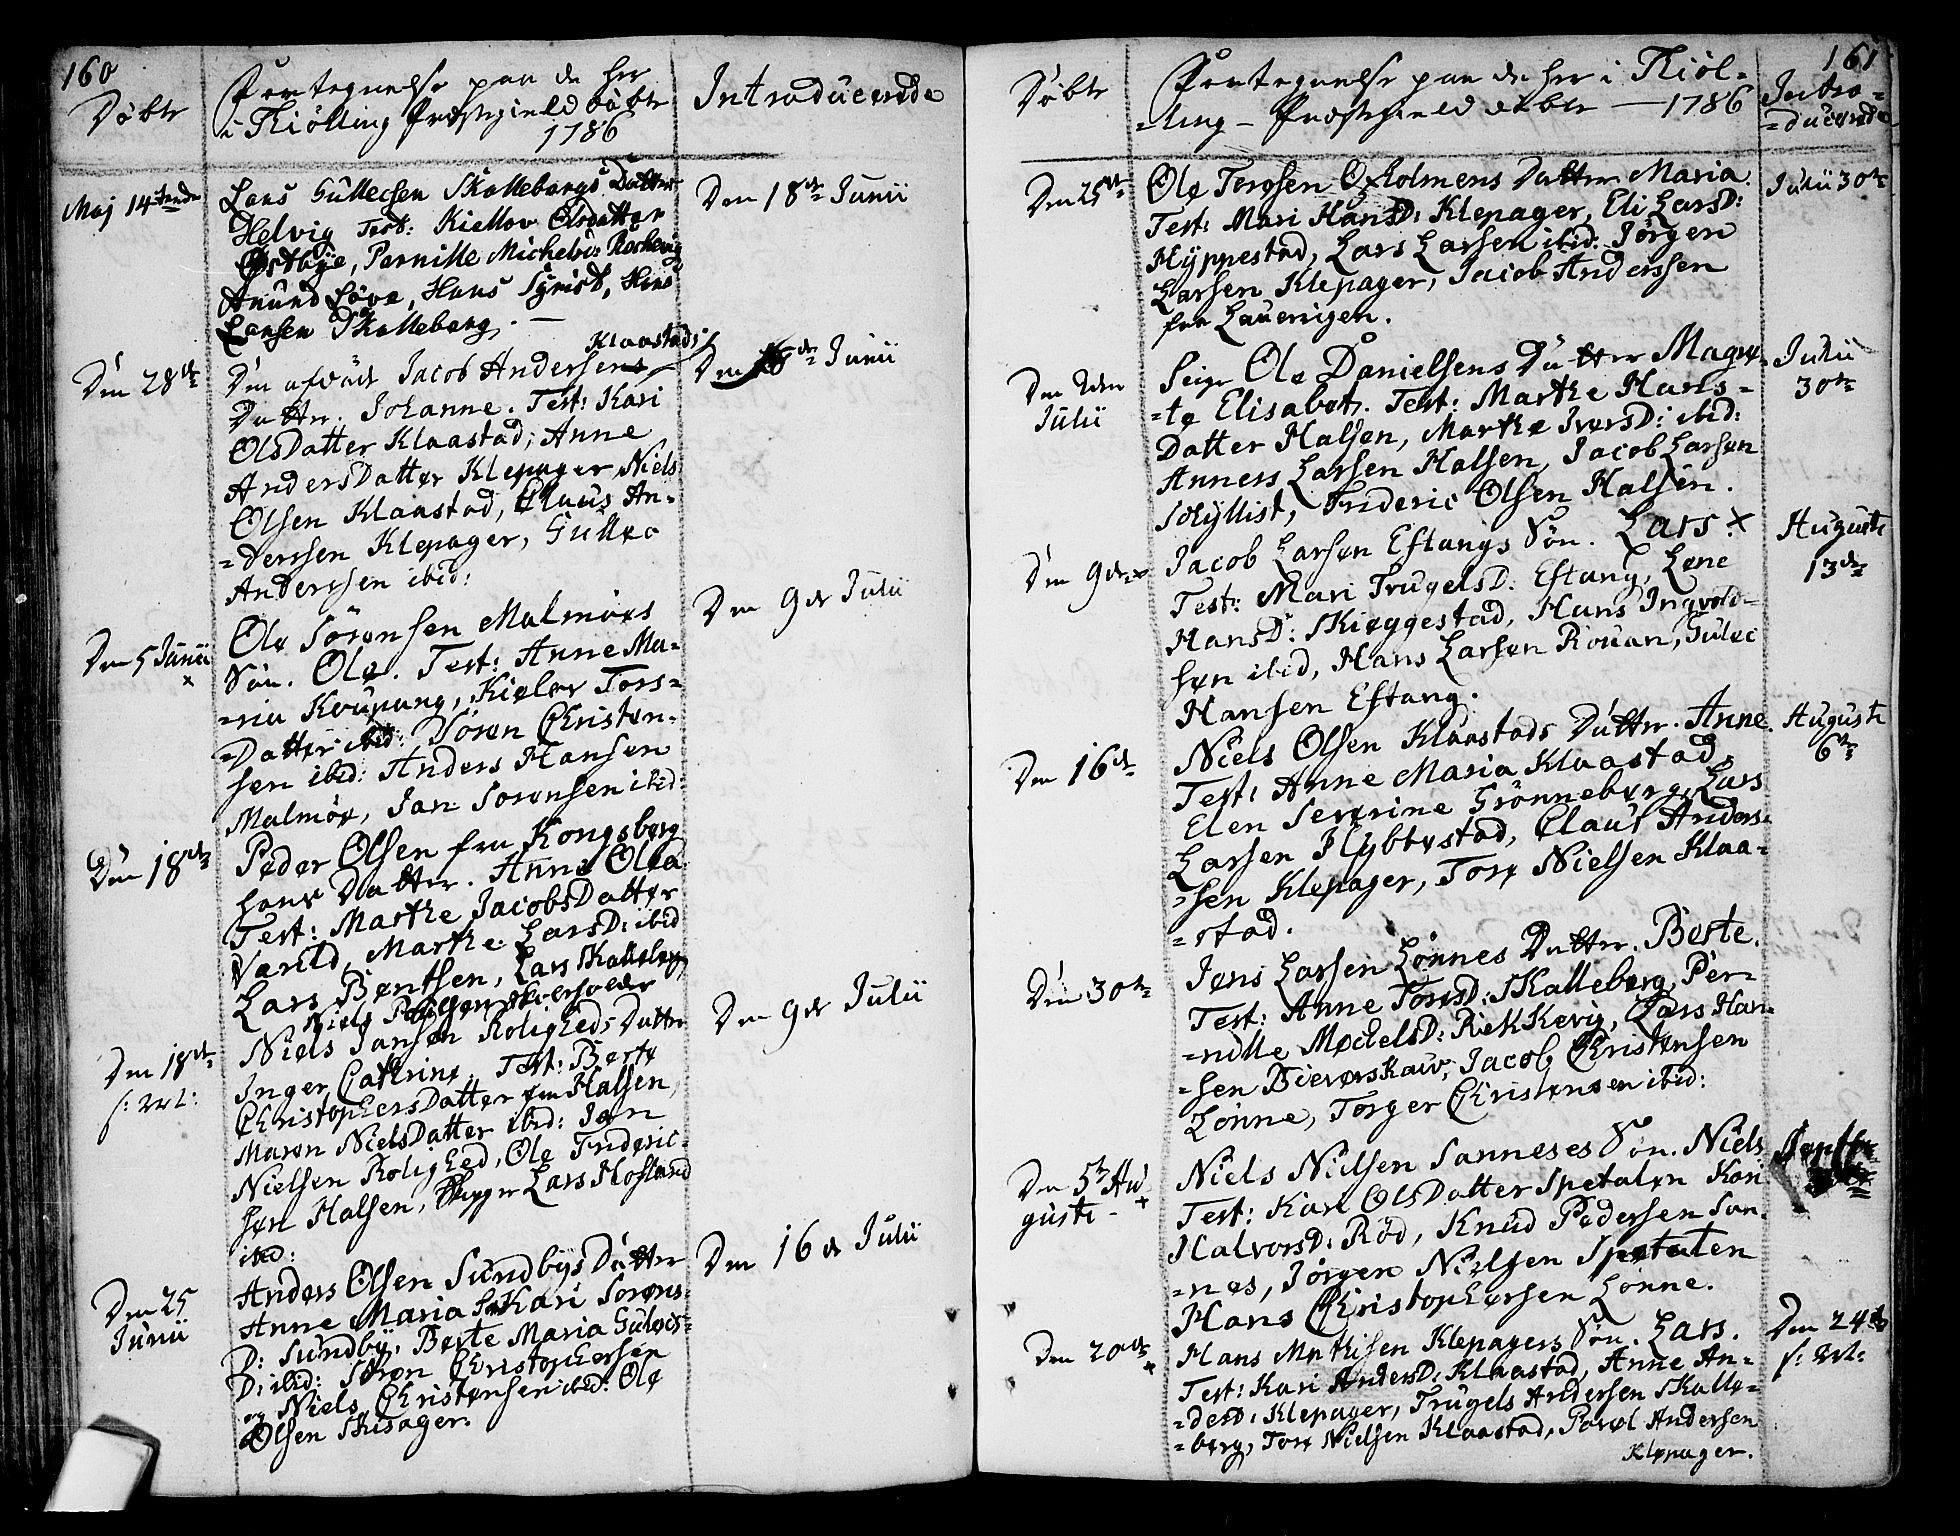 160
Døbte
Fortegnelse paa de her
i Thiølling Præstegield døbte
1786
Introducerede
Maj 14tende
Lars Gullecsen Skallebergs Datter
Helvig Test: Kiellov Olsdatter
Østbye, Pernille Michelsd:
Anund Løve, Hans Syrist, Hans
Larsen Skalleberg. —
Den 18de Junii
Den 28de
Klaastads
Den afdöde Jacob Andersens
Datter. Johanne. Test: Kari
OlsDatter Klaastad, Anne
AndersDatter Klepager, Niels
Olsen Klaastad, Claus An=
=derssen Klepager, Gulleo
Anderssen ibid:
Den 18de Junii
Den 5 Junii
x
Ole Sörensen Malmöes
Sön. Ole. Test: Anne Ma=
=ria Koupang, Kieler Tors=
=Datter ibid: Sören Christen=
sen ibid: Anders Hansen
Malmöe, Jan Sorensen ibid:
Den 9de Julii
Den 18de
Peder Olsen fra Kongsberg
hans Datter. Anne Olea
Test: Marthe JacobsDatter
Varild, Marthe LarsD: ibid
Lars Bentsen, Lars Skalleberg
Niels
Den 18de
s: M:
Niels Jansen Roligheds Datter
Inger Cathrine. Test: Berte
ChristophersDatter fra Halsen,
Maren NielsDatter ibid: Jan
Nielsen Rolighed, Ole Frideric=
sen Halsen, Lars Hofland
ibid:
Den 9de Julii
Den 25
Junii
Anders Olsen Sundbys Datter
Anne Maria Kari Sorens=
D: Sundby, Berte Maria Guloes=
D: ibid: Sören Christophersen
og Niels Christensen ibid: Ole
Olsen Skisager.
Den 16de Julii
161
Døbte
Fortegnelse paa de her i Thiøl=
=ling — Præstegield døbte — 1786
Intro=
=ducerede
Den 25de
Ole Tersen Oxholmens Datter Maria.
Test: Mari HansD: Klepager, Eli LarsD:
Hyppestad, Lars Larsen ibid: Jörgen
Larsen Klepager, Jacob Anderssen
fra Lauerigen.
Julii 30te
Den 2den
Julii
Seigr Ole Danielsens Datter Magre=
=te Elisabet. Test: Marthe Hans=
Datter Halsen, Marthe IversD: ibid:
Anners Larsen Halsen, Jacob Larsen
Schyllist, Frideric Olsen Halsen.
Julii
30te
Den 9de x
Jacob Larsen Eftangs Sön. Lars. x
Test: Mari TrugelsD: Eftang, Lene
HansD: Skieggestad, Hans Ingvold=
sen ibid, Hans Larsen Rouan, Guloc
Hansen Eftang.
Augusti
13de
Den 16de
Niels Olsen Klaastads Datter. Anne.
Test: Anne Maria Klaastad,
Elen Severine Grönneberg, Lars
Larsen Hybbestad, Claus Anders=
=sen Klepager, Tore Nielsen Klaa=
=stad.
Augusti
6te
Den 30te
Jens Larsen Lönnes Datter. Berte.
Test: Anne ToresD: Skalleberg, Per=
=nille MechelsD: Rekkevig, Lars Han=
=sen Bieverskaw, Jacob Christensen
Lönne, Torger Christensen ibid:
Den 5te Au
gusti — +
Niels Nielsen Sanneses Sön. Niels
Test: Kari OlsDatter Spetalen Kari
HalvorsD: Röd, Knud Pedersen San=
=nes, Jörgen Nielsen Spetalen
Hans Christophersen Lönne.
Septbr
Den 20de
+
Hans Mathisen Klepagers Sön. Lars.
Test: Kari AndersD: Klaastad, Anne An=
=dersD: Klepager, Trugels Andersen Skalle=
=berg, Tore Nielsen Klaastad, Povel Andersen
Klepager.
Den 24de
s: M: